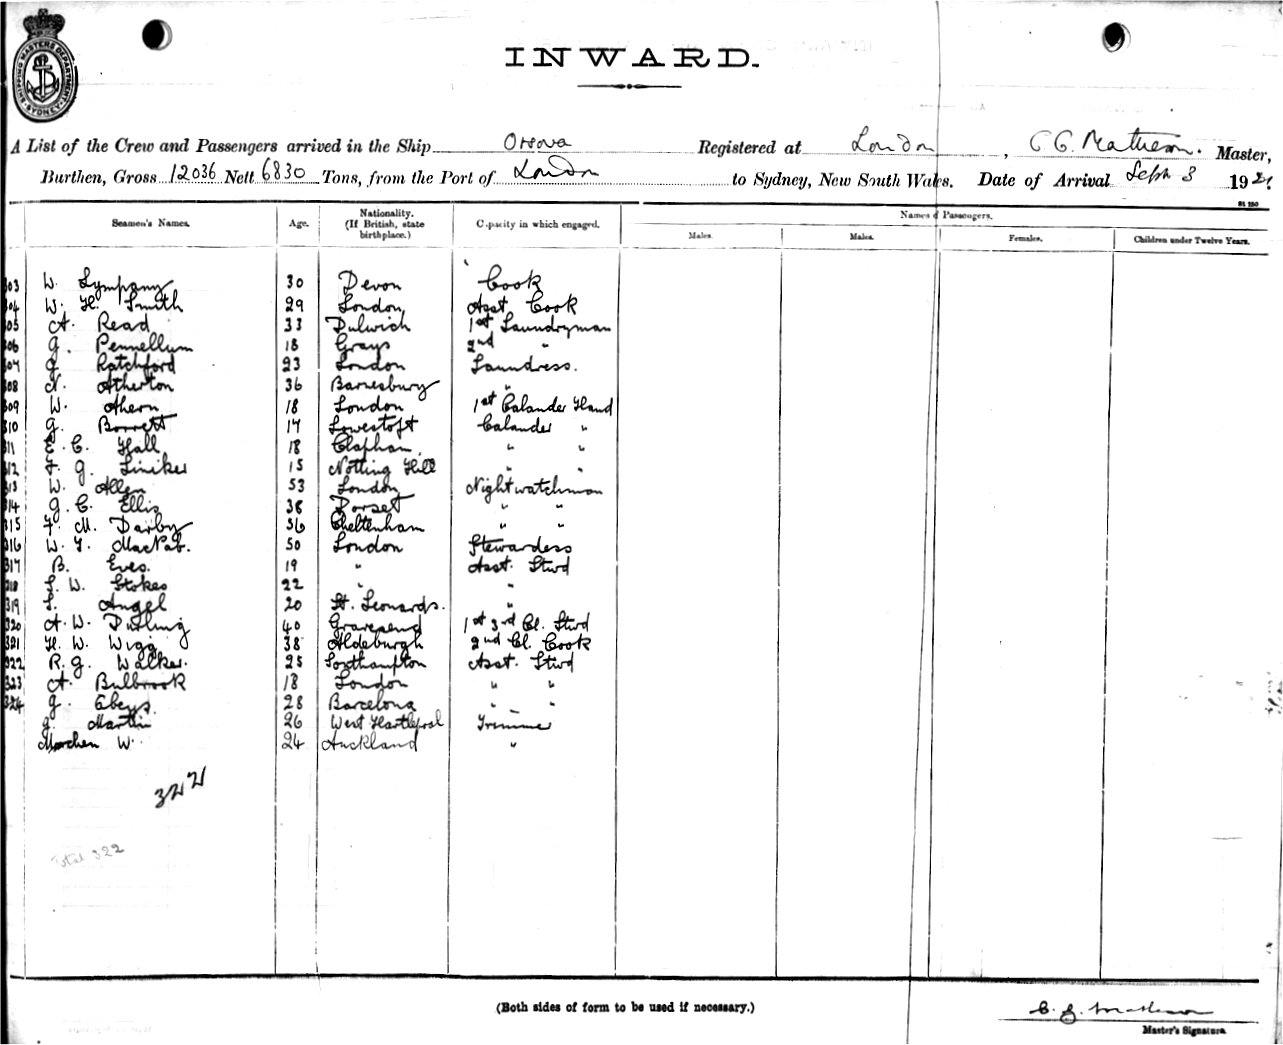 SHIPPING MASTERS DEPARTMENT SYDNEY
INWARD.
A List of the Crew and Passengers arrived in the Ship Orsova Registered at London, C G. Matheson. Master,
Burthen, Gross 12036 Nett 6830 Tons, from the Port of London to Sydney, New South Wales. Date of Arrival Sept 3 1921
Seamen's Names. Age. Nationality. (If British, state birthplace.) Capacity in which engaged. Names of Passengers.
Males. Males. Females. Children under Twelve Years.
303 W. Lympany 30 Devon Cook
304 W. H. Smith 29 London Asst Cook
305 A. Read 33 Dulwich 1st Laundryman
306 G. Pennellum 18 Grays 2nd "
307 G. Ratchford 23 London Laundress.
308 N. Atherton 36 Barnesbury "
309 W. Ahern 18 London 1st Calander Hand
310 G. Barrett 17 Lowestoft Calander "
311 E. C. Hall 18 Clapham " "
312 F. G. Liniker 15 Notting Hill " "
313 W. Allen 53 London Nightwatchman
314 G. C. Ellis 38 Dorset " "
315 F. M. Darby 36 Cheltenham " "
316 W. F. MacNab. 50 London Stewardess
317 B. Eves. 19 " Asst. Stwd
318 L. W. Stokes 22 " "
319 L. Angel 20 St. Leonards. "
320 A. W. Durling 40 Gravesend 1st 3rd Cl. Stwd
321 H. W. Wigg 38 Aldeburgh 2nd Cl. Cook
322 R. G. Walker. 25 Southampton Asst. Stwd
323 A. Bulbrook 18 London " "
324 G. Abeys. 28 Barcelona " "
G. Martin 26 West Hartlepool Trimmer
W. 24 Auckland "
322
Total 322
(Both sides of form to be used if necessary.)
C. G. Matheson
Master's Signature.